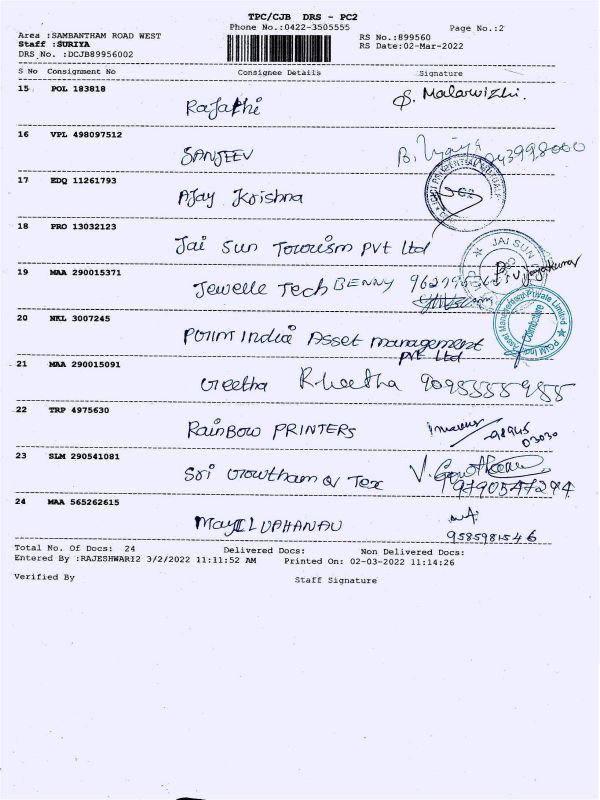 TPC/CJB DRS - PC2
Phone No.:0422-3505555 Page No.:2
Area :SAMBANTHAM ROAD WEST RS No.:899560
Staff :SURIYA RS Date:02-Mar-2022
DRS No. :DCJB89956002
S No Consignment No Consignee Details Signature
15 POL 183818
Rajathi S. Malarwizhi.
16 VPL 498097512
SANJEEV B.
17 EDQ 11261793
Ajay Krishna
18 PRO 13032123
Jai Sun Tourism Pvt Ltd
JAI SUN
19 MAA 290015371
Jewelle Tech BENNY
20 NKL 3007245
PGIM India Asset management
Pvt Ltd
Asset Management Private Limited ★ PGIM India
Coimbatore
21 MAA 290015091
Geetha R.Geetha
22 TRP 4975630
RainBow PRINTERS 98945
03030
23 SLM 290541081
Sri Gowtham Tex V.
9790547274
24 MAA 565262615
MayILVAHANAN
9585981546
Total No. Of Docs: 24 Delivered Docs: Non Delivered Docs:
Entered By :RAJESHWARI2 3/2/2022 11:11:52 AM Printed On: 02-03-2022 11:14:26
Verified By Staff Signature